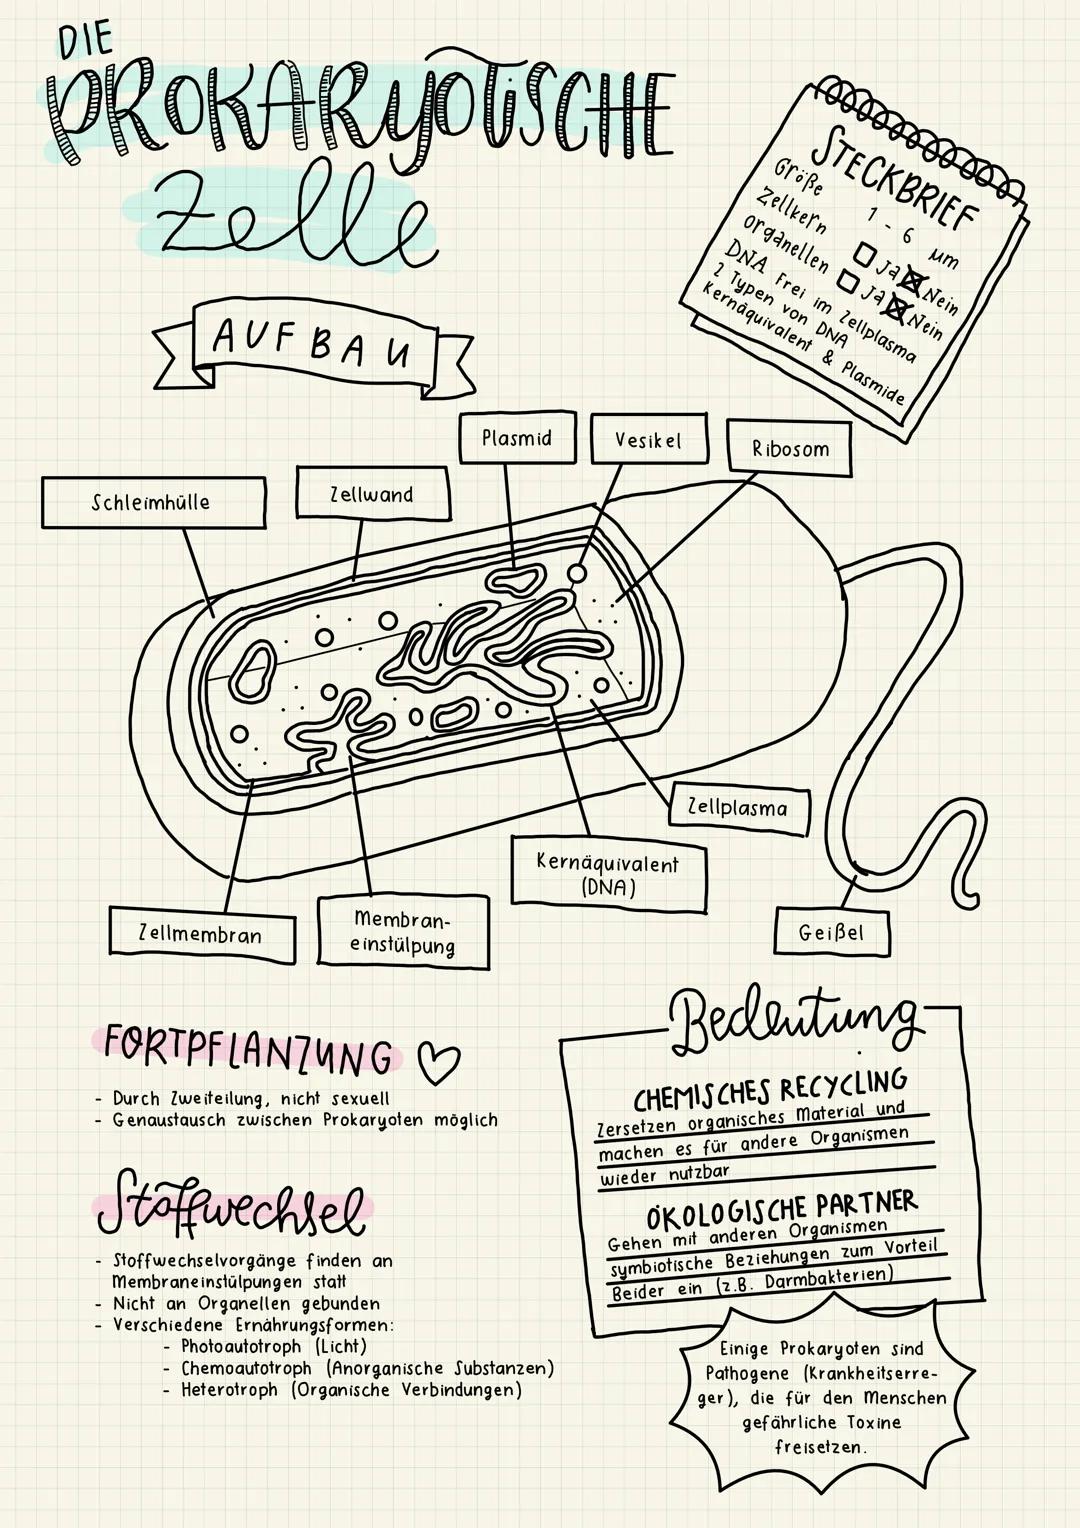 DIE
PROKARYOTISCHE
Zelle
STECKBRIEF
Größe 1 - 6 µm
Zellkern Ja Nein
organellen Ja Nein
DNA frei im Zellplasma
2 Typen von DNA
Kernäquivalent & Plasmide
AUFBAU
Plasmid
Vesikel
Ribosom
Schleimhülle
Zellwand
Zellplasma
Kernäquivalent
(DNA)
Zellmembran
Membran-
einstülpung
Geißel
FORTPFLANZUNG
- Durch Zweiteilung, nicht sexuell
- Genaustausch zwischen Prokaryoten möglich
Stoffwechsel
- Stoffwechselvorgänge finden an
Membraneinstülpungen statt
- Nicht an Organellen gebunden
- Verschiedene Ernährungsformen:
- Photoautotroph (Licht)
- Chemoautotroph (Anorganische Substanzen)
- Heterotroph (Organische Verbindungen)
Bedeutung
CHEMISCHES RECYCLING
Zersetzen organisches Material und
machen es für andere Organismen
wieder nutzbar
ÖKOLOGISCHE PARTNER
Gehen mit anderen Organismen
symbiotische Beziehungen zum Vorteil
Beider ein (z.B. Darmbakterien)
Einige Prokaryoten sind
Pathogene (Krankheitserre-
ger), die für den Menschen
gefährliche Toxine
freisetzen.